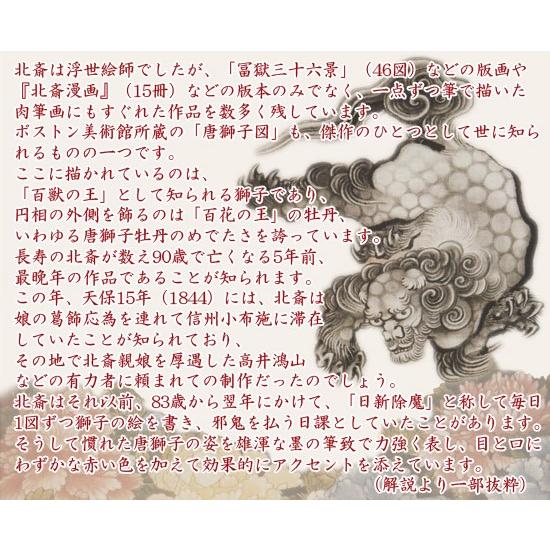 北斎は浮世絵師でしたが、「冨獄三十六景」（46図）などの版画や
『北斎漫画』（15冊）などの版本のみでなく、一点ずつ筆で描いた
肉筆画にもすぐれた作品を数多く残しています。
ボストン美術館所蔵の「唐獅子図」も、傑作のひとつとして世に知ら
れるものの一つです。
ここに描かれているのは、
「百獣の王」として知られる獅子であり、
円相の外側を飾るのは「百花の王」の牡丹、
いわゆる唐獅子牡丹のめでたさを誇っています。
長寿の北斎が数え90歳で亡くなる5年前、
最晩年の作品であることが知られます。
この年、天保15年（1844）には、北斎は
娘の葛飾応為を連れて信州小布施に滞在
していたことが知られており、
その地で北斎親娘を厚遇した高井鴻山
などの有力者に頼まれての制作だったのでしょう。
北斎はそれ以前、83歳から翌年にかけて、「日新除魔」と称して毎日
1図ずつ獅子の絵を書き、邪鬼を払う日課としていたことがあります。
そうして慣れた唐獅子の姿を雄渾な墨の筆致で力強く表し、目と口に
わずかな赤い色を加えて効果的にアクセントを添えています。
（解説より一部抜粋）